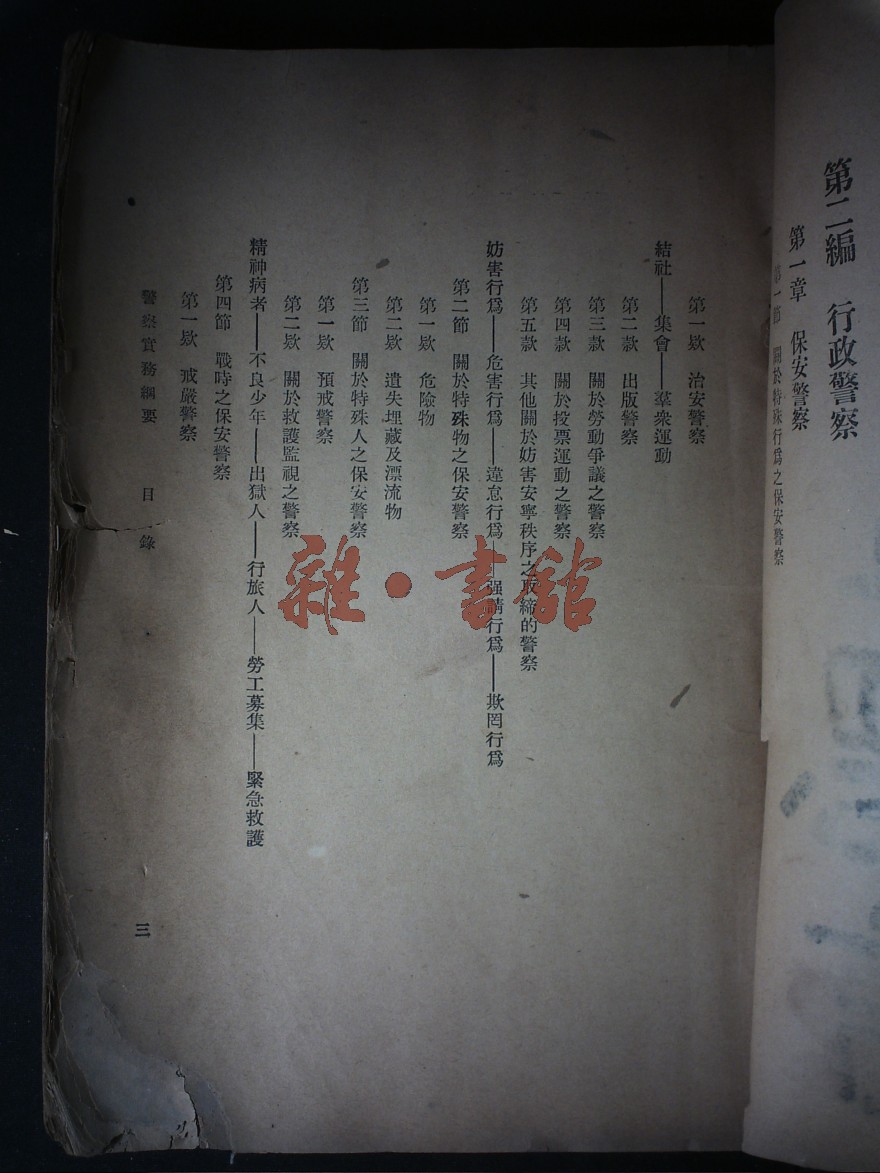 第二編　行政警察
第一章　保安警察
第一節　關於特殊行爲之保安警察
第一欵　治安警察
結社——集會——羣衆運動
第二款　出版警察
第三款　關於勞動爭議之警察
第四款　關於投票運動之警察
第五款　其他關於妨害安寧秩序之取締的警察
妨害行爲——危害行爲——違怠行爲——强請行爲——欺罔行爲
第二節　關於特殊物之保安警察
第一欵　危險物
第二欵　遺失埋藏及漂流物
第三節　關於特殊人之保安警察
第一欵　預戒警察
第二欵　關於救護監視之警察
精神病者——不良少年——出獄人——行旅人——勞工募集——緊急救護
第四節　戰時之保安警察
第一欵　戒嚴警察
警察實務綱要　目錄
三
雜·書館